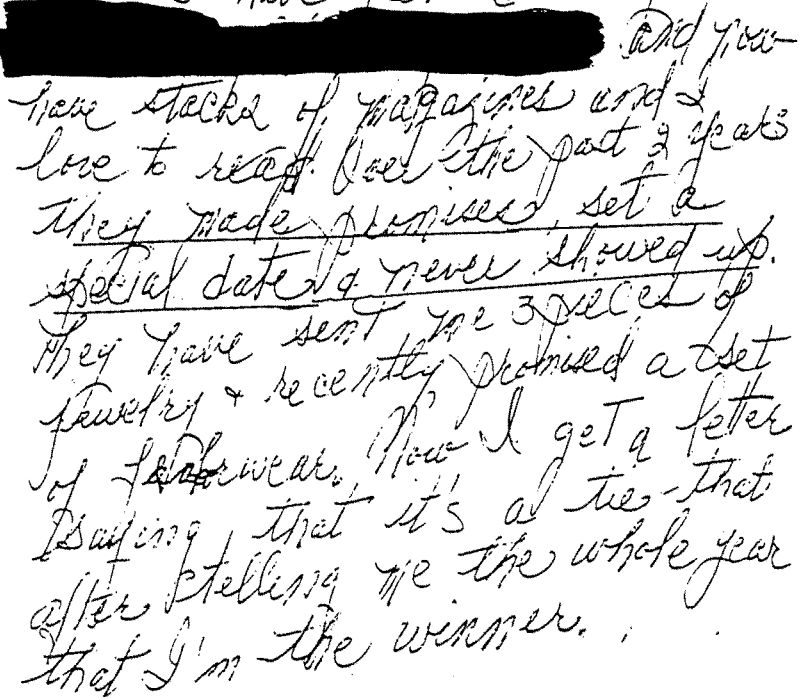 and now
have stacks of magazines and I
love to read. Over the past 2 years
they made promises, set a
special date & never showed up.
They have sent me 3 pieces of
jewelry & recently promised a set
of wear. Now I get a letter
saying that it's a tie - that
after telling me the whole year
that I'm the winner.